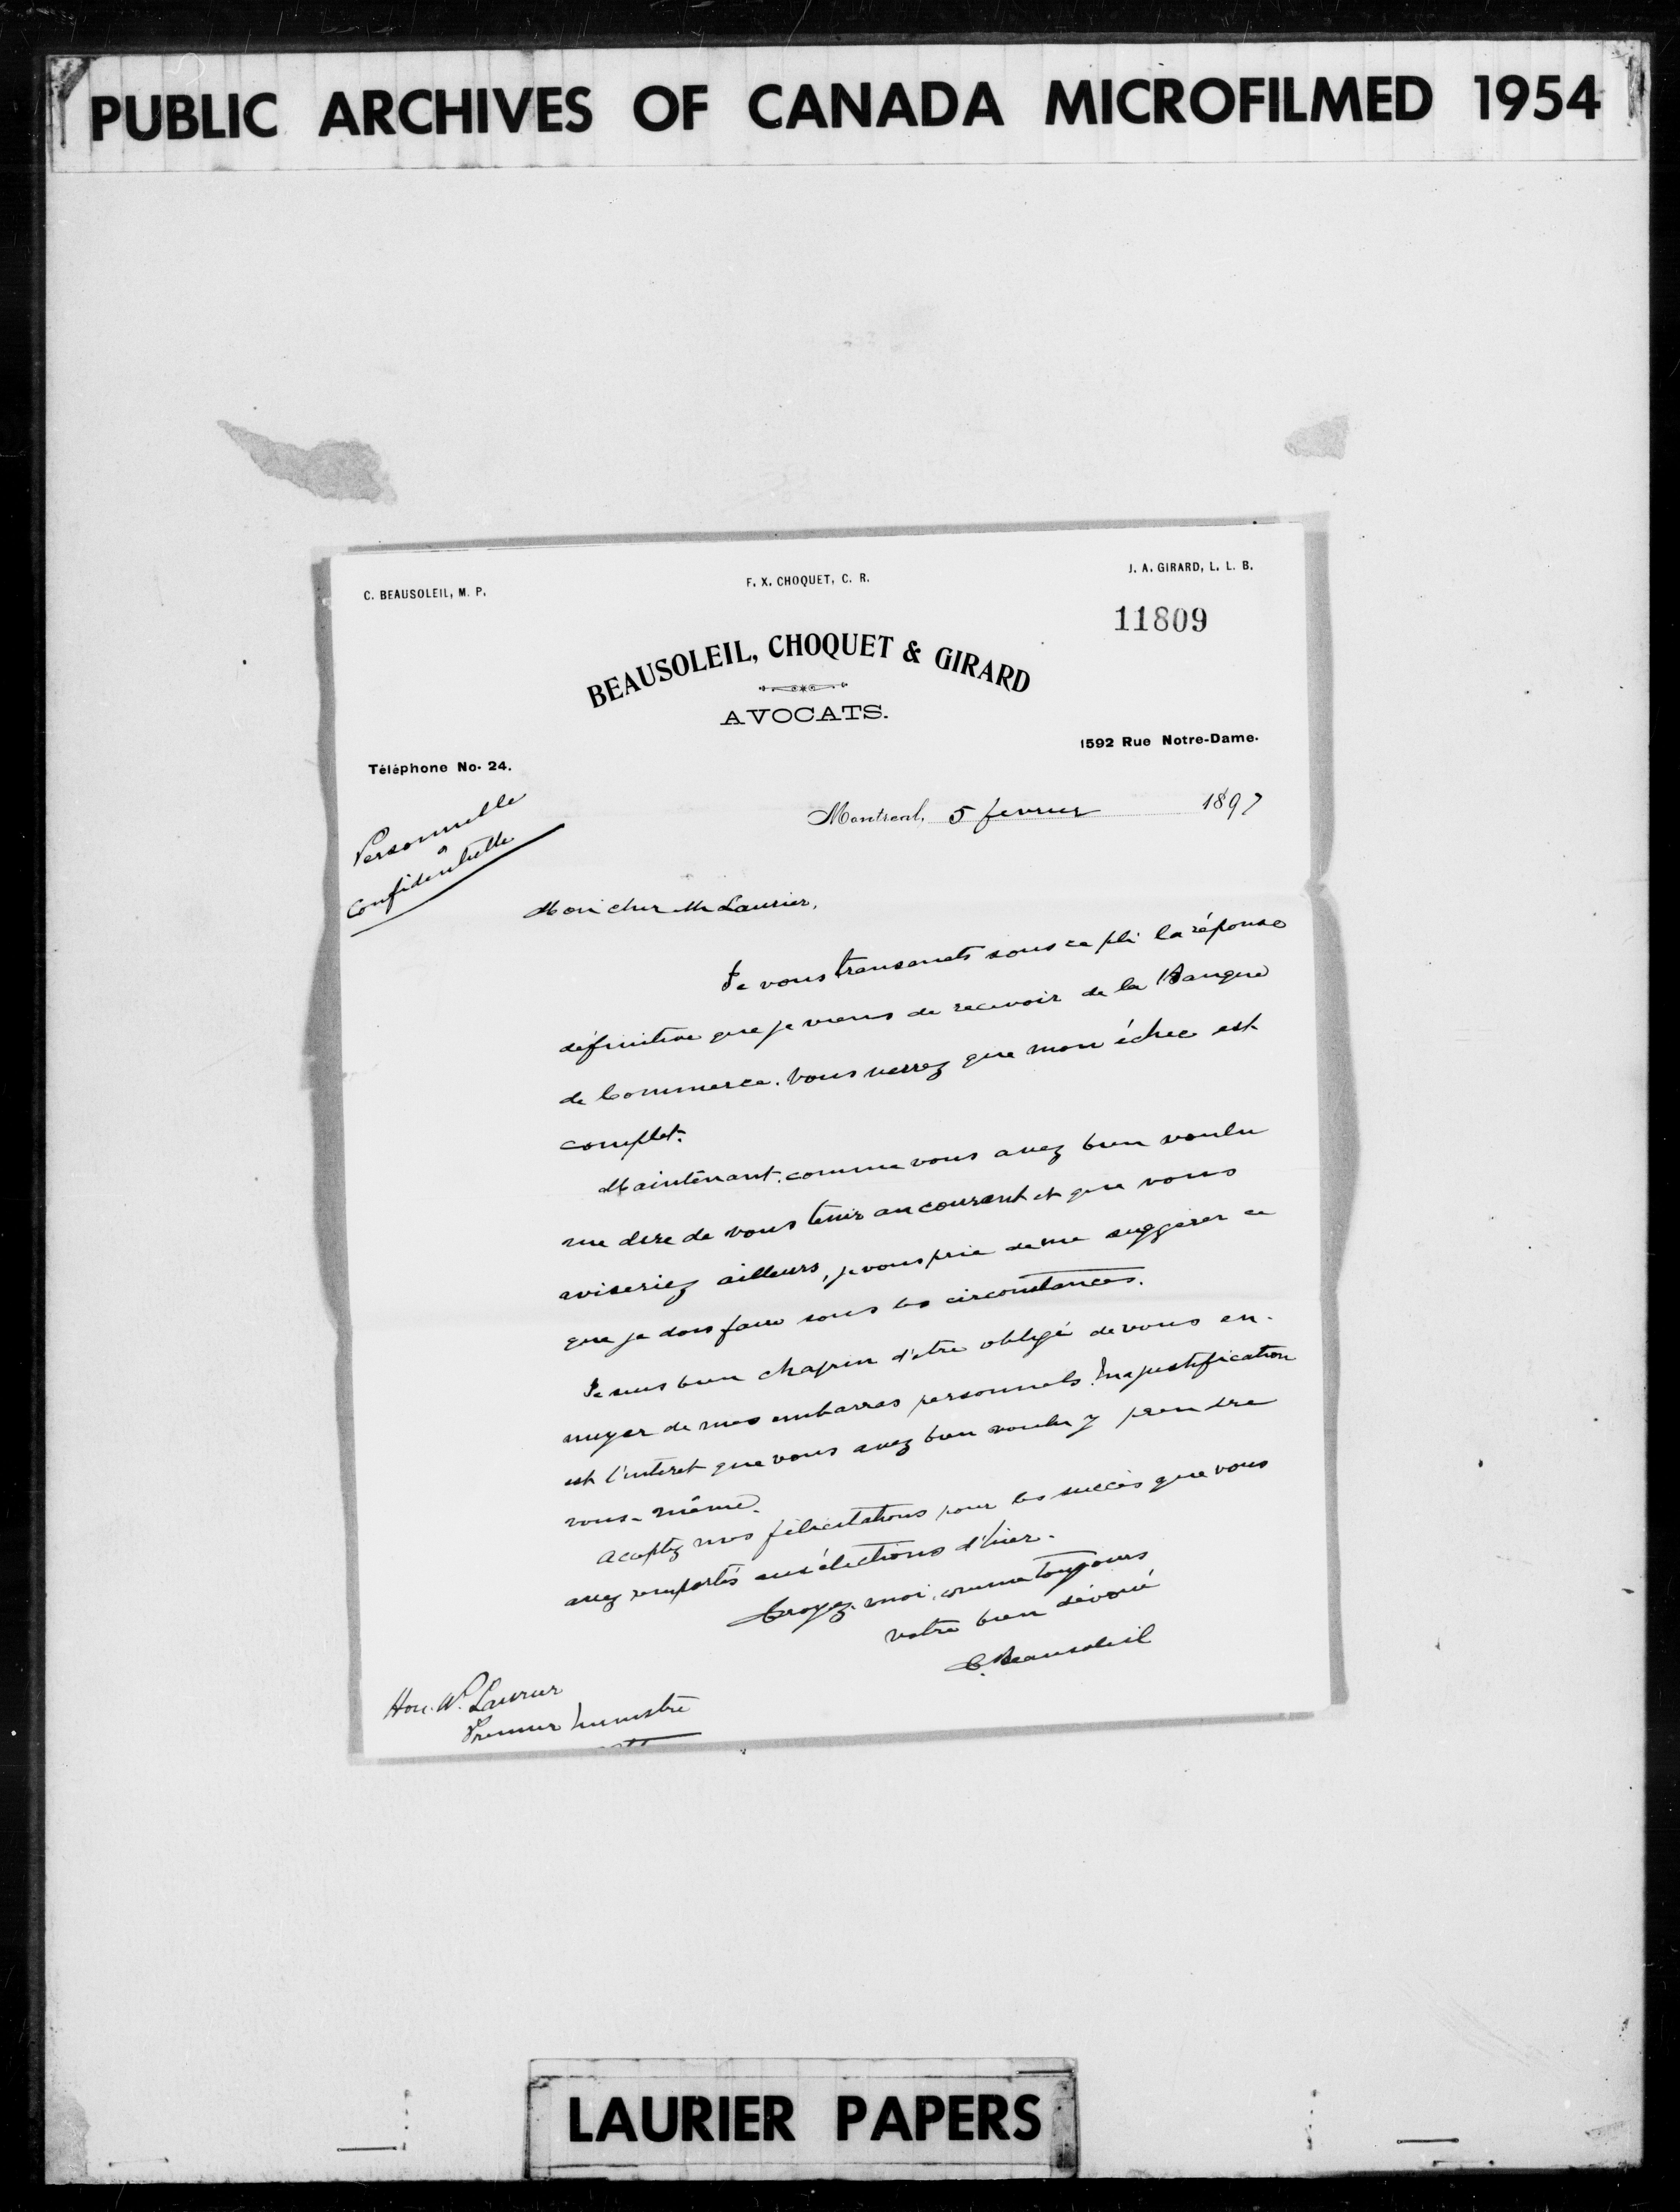 PUBLIC ARCHIVES OF CANADA MICROFILMED 1954
C. BEAUSOLEIL, M. P.
F. X. CHOQUET, C. R.
J. A. GIRARD, L. L. B.
11809
BEAUSOLEIL, CHOQUET & GIRARD
AVOCATS.
1592 Rue Notre-Dame.
Téléphone No. 24.
Personnelle
&
Confidentielle
Montreal, 5 fevrier 1897
Mon cher Mr Laurier,
Je vous transmets sous ce pli la réponse
définitive que je viens de recevoir de la Banque
de Commerce. Vous verrez que mon échec est
complet.
Maintenant, comme vous avez bien voulu
me dire de vous tenir au courant et que vous
aviseriez ailleurs, je vous prie de me suggérer ce
que je dois faire sous les circonstances.
Je suis bien chagrin d'être obligé de vous en-
nuyer de mes embarras personnels. Ma justification
est l'interet que vous avez bien voulu y prendre
vous-même.
Acceptez mes félicitations pour les succès que vous
avez remportés aux élections d'hier.
Croyez-moi, comme toujours
votre bien dévoué
C. Beausoleil
Hon. W. Laurier
Premier Ministre
LAURIER PAPERS